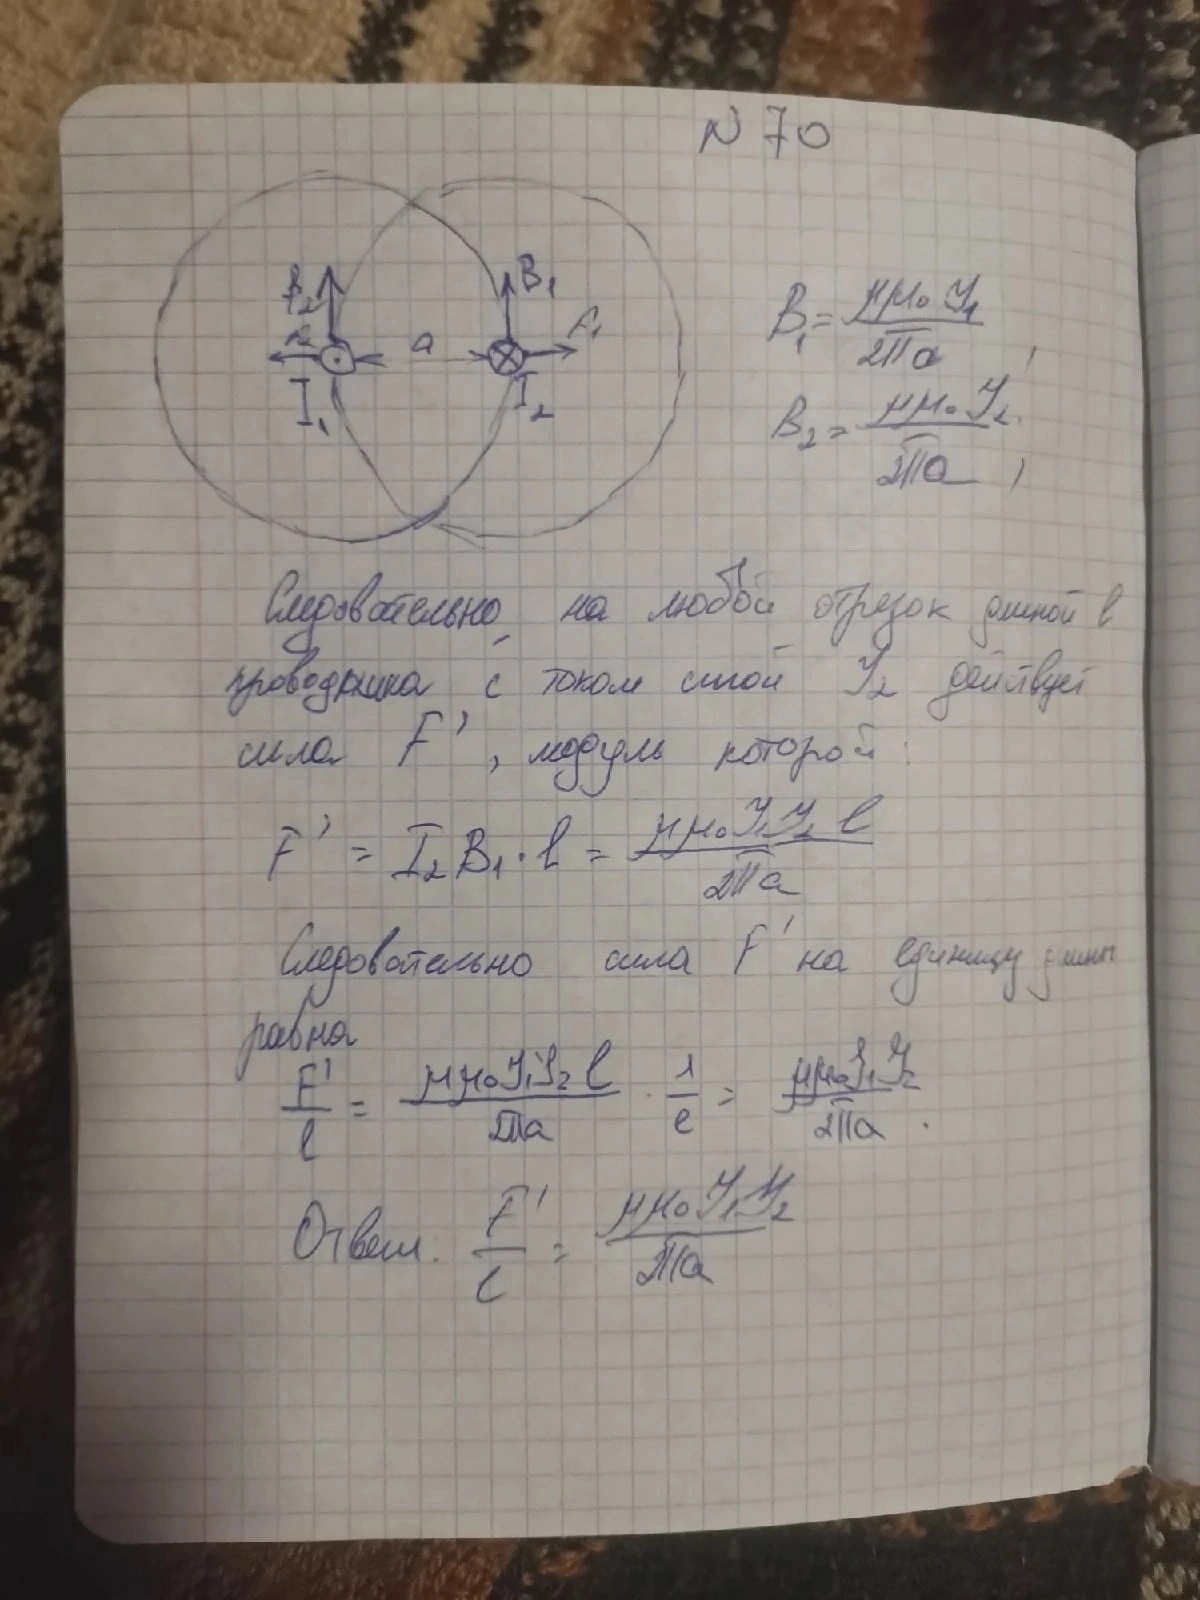 N 70
B₂ B₁
a F₁
I₁ I₂
B₁ = μμ₀ I₁ / 2πa ,
B₂ = μμ₀ I₂ / 2πa ,
Следовательно, на любой отрезок длиной l
проводника с током силой I₂ действует
сила F', модуль которой:
F' = I₂ B₁ · l = μμ₀ I₁ I₂ l / 2πa
Следовательно сила F' на единицу длины
равна
F'/l = μμ₀ I₁ I₂ l / 2πa · 1/l = μμ₀ I₁ I₂ / 2πa .
Ответ: F'/l = μμ₀ I₁ I₂ / 2πa